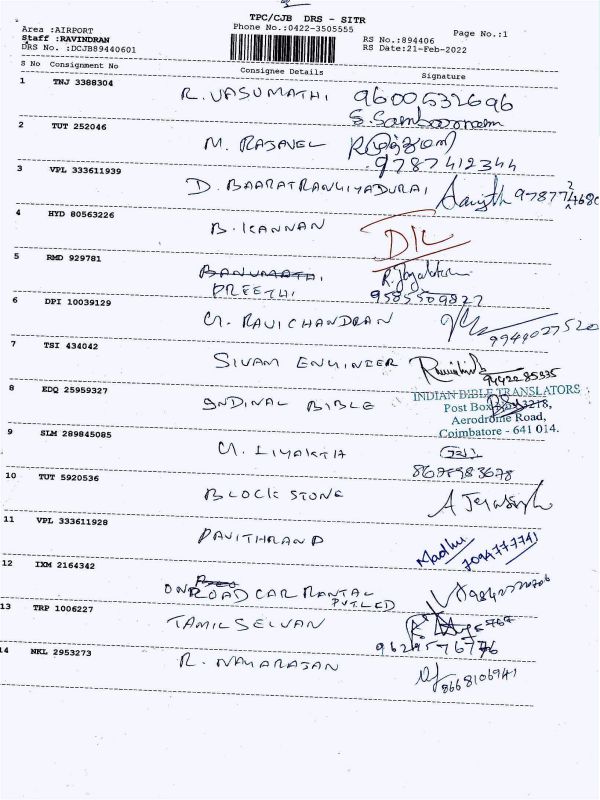 TPC/CJB DRS - SITR
Area :AIRPORT Phone No.:0422-3505555 Page No.:1
Staff :RAVINDRAN RS No.:894406
DRS No. :DCJB89440601 RS Date:21-Feb-2022
S No Consignment No Consignee Details Signature
1 TNJ 3388304 R. VASUMATHI 9600532696
2 TUT 252046 M. RAJAVEL
9787412344
3 VPL 333611939 D. BAARATRANGIYADURAI
4 HYD 80563226 B. KANNAN
5 RMD 929781 BANUMATHI
PREETHI 9585509827
6 DPI 10039129 G. RAVICHANDRAN 9944027520
7 TSI 434042 SIVAM ENGINEER 9442285335
8 EDQ 25959327 INDINAL BIBLE INDIAN BIBLE TRANSLATORS
Post Box No 3218,
Aerodrome Road,
Coimbatore - 641 014.
9 SLM 289845085 G. LIYAKTH
10 TUT 5920536 BLOCK STONE
11 VPL 333611928 PAVITHRAN D Madhu
7094777741
12 IXM 2164342 ON ROAD CAR RANTAL
PVT LED
13 TRP 1006227 TAMIL SELVAN
9629576776
14 NKL 2953273 R. NAGARAJAN 8668106941